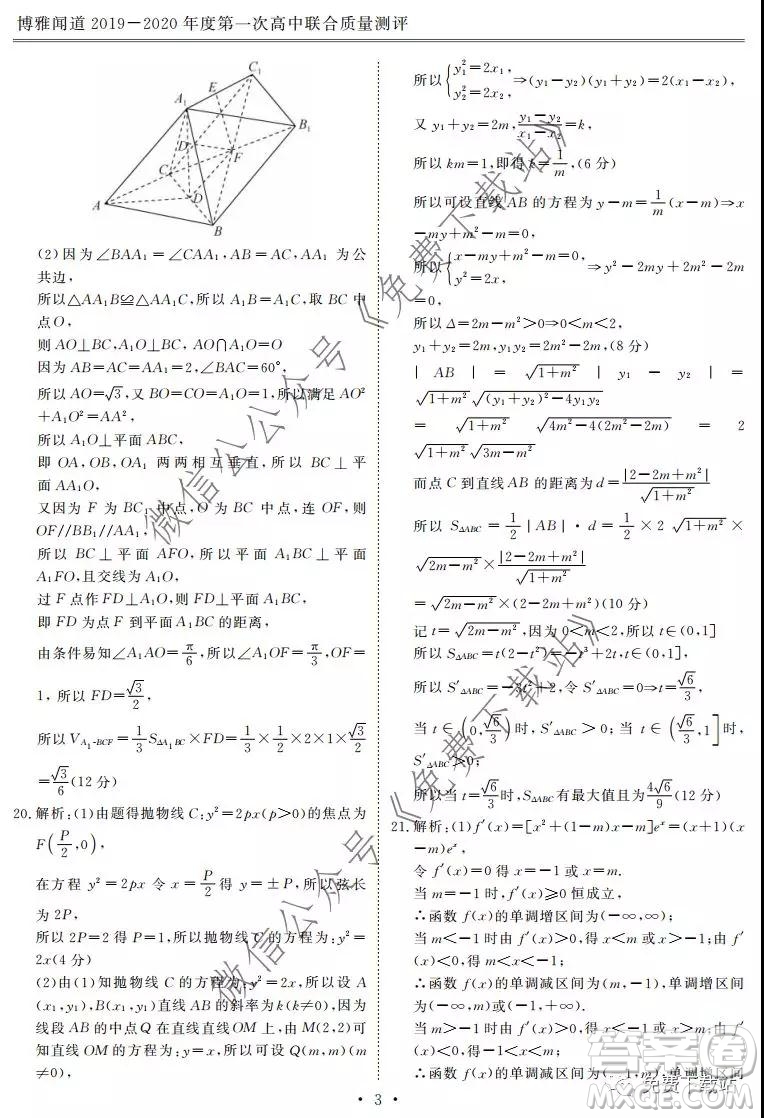 博雅闻道 2019－2020 年度第一次高中联合质量测评
C₁
E
A₁
B₁
D
F
C
A
D
B
(2)因为∠BAA₁=∠CAA₁,AB=AC,AA₁ 为公
共边,
所以△AA₁B≌△AA₁C,所以 A₁B=A₁C,取 BC 中
点O,
则 AO⊥BC,A₁O⊥BC, AO∩A₁O=O
因为 AB=AC=AA₁=2,∠BAC=60°,
所以AO=√3,又 BO=CO=A₁O=1,所以满足 AO²
+A₁O²=AA²,
所以 A₁O⊥平面ABC,
即 OA,OB,OA₁ 两两相互垂直,所以 BC⊥平
面AA₁O,
又因为 F 为 BC₁ 中点,O 为 BC 中点,连 OF,则
OF//BB₁//AA₁,
所以 BC⊥平面 AFO,所以平面 A₁BC⊥平面
A₁FO,且交线为A₁O,
过 F 点作 FD⊥A₁O,则 FD⊥平面A₁BC,
即 FD 为点 F 到平面 A₁BC 的距离,
由条件易知∠A₁AO=π/6,所以∠A₁OF=π/3,OF=
1,所以 FD=√3/2,
所以V_{A₁-BCF}=1/3 S_{ΔA₁BC}×FD=1/3×1/2×2×1×√3/2
=√3/6(12 分)
20.解析:(1)由题得抛物线 C:y²=2px(p>0)的焦点为
F(P/2,0),
在方程 y²=2px 令 x=P/2得 y=±P,所以弦长
为 2P,
所以 2P=2 得 P=1,所以抛物线 C 的方程为:y²=
2x(4 分)
(2)由(1)知抛物线 C 的方程为:y²=2x,所以设 A
(x₁,y₁),B(x₁,y₁)直线 AB 的斜率为k(k≠0),因为
线段 AB 的中点Q 在直线直线OM 上,由 M(2,2)可
知直线 OM 的方程为:y=x,所以可设 Q(m,m)(m
≠0),
所以{y₁²=2x₁, y₂²=2x₂, ⇒(y₁−y₂)(y₁+y₂)=2(x₁−x₂),
又 y₁+y₂=2m,(y₁−y₂)/(x₁−x₂)=k,
所以 km=1,即得 k=1/m,(6 分)
所以可设直线 AB 的方程为 y−m=1/m(x−m)⇒x
−my+m²−m=0,
所以{x−my+m²−m=0, y²=2x ⇒y²−2my+2m²−2m
=0,
所以 Δ=2m−m²>0⇒0<m<2,
y₁+y₂=2m,y₁y₂=2m²−2m,(8 分)
| AB | = √(1+m²) | y₁ − y₂ | =
√(1+m²)√((y₁+y₂)²−4y₁y₂)
= √(1+m²) √(4m²−4(2m²−2m)) = 2
√(1+m²)√(3m−m²)
而点 C 到直线 AB 的距离为d=|2−2m+m²|/√(1+m²)
所以 S_{ΔABC}=1/2|AB|·d=1/2×2 √(1+m²)×
√(2m−m²)×|2−2m+m²|/√(1+m²)
=√(2m−m²)×(2−2m+m²)(10 分)
记 t=√(2m−m²),因为 0<m<2,所以 t∈(0,1]
所以 S_{ΔABC}=t(2−t²)=−t³+2t,t∈(0,1]
所以 S′_{ΔABC}=−3t²+2,令 S′_{ΔABC}=0⇒t=√6/3,
当 t∈(0,√6/3)时,S′_{ΔABC}>0;当 t∈(√6/3,1]时,
S′_{ΔABC}<0;
所以当 t=√6/3时,S_{ΔABC}有最大值且为4√6/9(12 分)
21.解析:(1)f′(x)=[x²+(1−m)x−m]eˣ=(x+1)(x
−m)eˣ,
令 f′(x)=0 得 x=−1 或 x=m.
当 m=−1 时,f′(x)⩾0 恒成立,
∴函数 f(x)的单调增区间为(−∞,∞);
当 m<−1 时由 f′(x)>0,得 x<m 或 x>−1,由
f′(x)<0,得 m<x<−1,
∴函数 f(x)的单调减区间为(m,−1),单调增区间
为(−∞,m)或(−1,∞);
当 m>−1 时由 f′(x)>0,得 x<−1 或 x>m,由 f′
(x)<0,得−1<x<m,
∴函数 f(x)的单调减区间为(−1,m),单调增区间
· 3 ·
微信公众号《免费下载站》
微信公众号《免费下载站》
免费下载站
答案圈